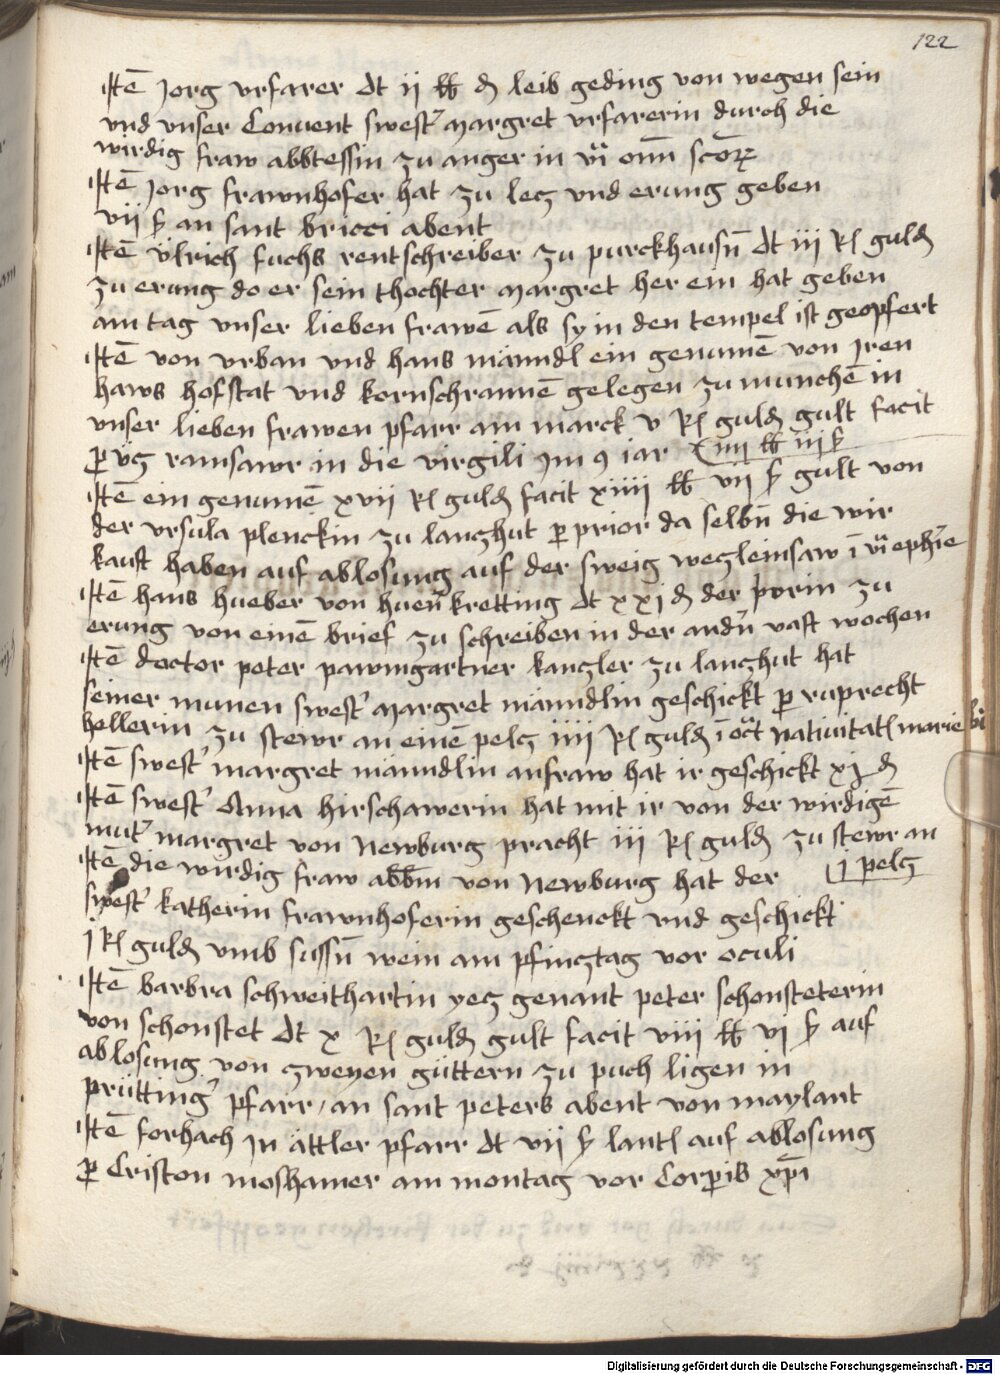 122
Itē Jorg vrfarer dt ij ℔ ₰ leib geding von wegen sein
vnd vnser Conuent swest' Margret vrfarerin durch die
wirdig fraw abbtessin zu anger in
Itē Jorg frawnhofer hat zu lecz vnd erung geben
vij ß an sant bricci abent
Itē Ulrich fuchs rentschreiber zu purckhausn̄ dt iij R guld
zu erung do er sein thochter Margret her ein hat geben
am tag vnser lieben frawē als sy in den tempel ist geopfert
Itē von vrban vnd hans männdl ein genumē von Iren
haws hofstat vnd kornschrannē gelegen zu munchē in
vnser lieben frawen pfarr am marck v R guld gult facit
ramsawr in die virgili Im 9 iar iiij ℔ iij ß
Itē ein genumē xvij R guld facit xiiij ℔ vij ß gult von
der vrsula plenckin zu lanczhut p prior da selbn̄ die wir
kauft haben auf ablosung auf der sweig weczleinsaw ī
Itē hans hueber von kretting dt xxj ₰ der porin zu
erung von einē brief zu schreiben in der andn̄ vast wochen
Itē doctor peter pawmgartner kanczler zu lanczhut hat
seiner mumen swest' Margret männdlin geschickt p ruprecht
hellerin zu stewr an einē pelcz iiij R guld ī oct natiuitat marie
Itē swest' margret männdlin anfraw hat ir geschickt xj ₰
Itē swest' Anna hirschawerin hat mit ir von der wirdigē
mut' margret von Newburg pracht iij R guld zu stewr an
j pelcz
Itē die wirdig fraw abbm̄ von Newburg hat der
swest' katherin frawnhoferin geschenckt vnd geschickt
j R guld vmb sussn̄ wein am pfincztag vor oculi
Itē barbra schweithartin yecz genant peter schonsteterin
von schonstet dt x R guld gult facit viij ℔ vj ß auf
ablosung von zweyen güttern zu puch ligen in
prütting' pfarr / an sant peters abent von maylant
Itē forhach In ättler pfarr dt vij ß lantl auf ablosung
p Criston moshamer am montag vor Corpis xp̄i
Digitalisierung gefördert durch die Deutsche Forschungsgemeinschaft - DFG